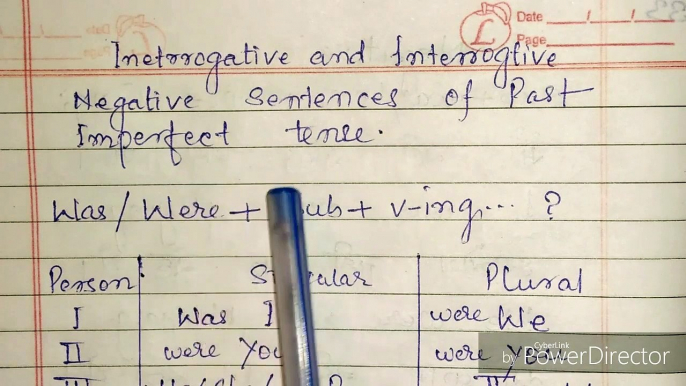 Date
Page
Inetrrogative and Interrogtive
Negative Sentences of Past
Imperfect tense.
Was / Were + Sub + v-ing... ?
Person Plural
I Was I were We
II were You were you
CyberLink
by PowerDirector